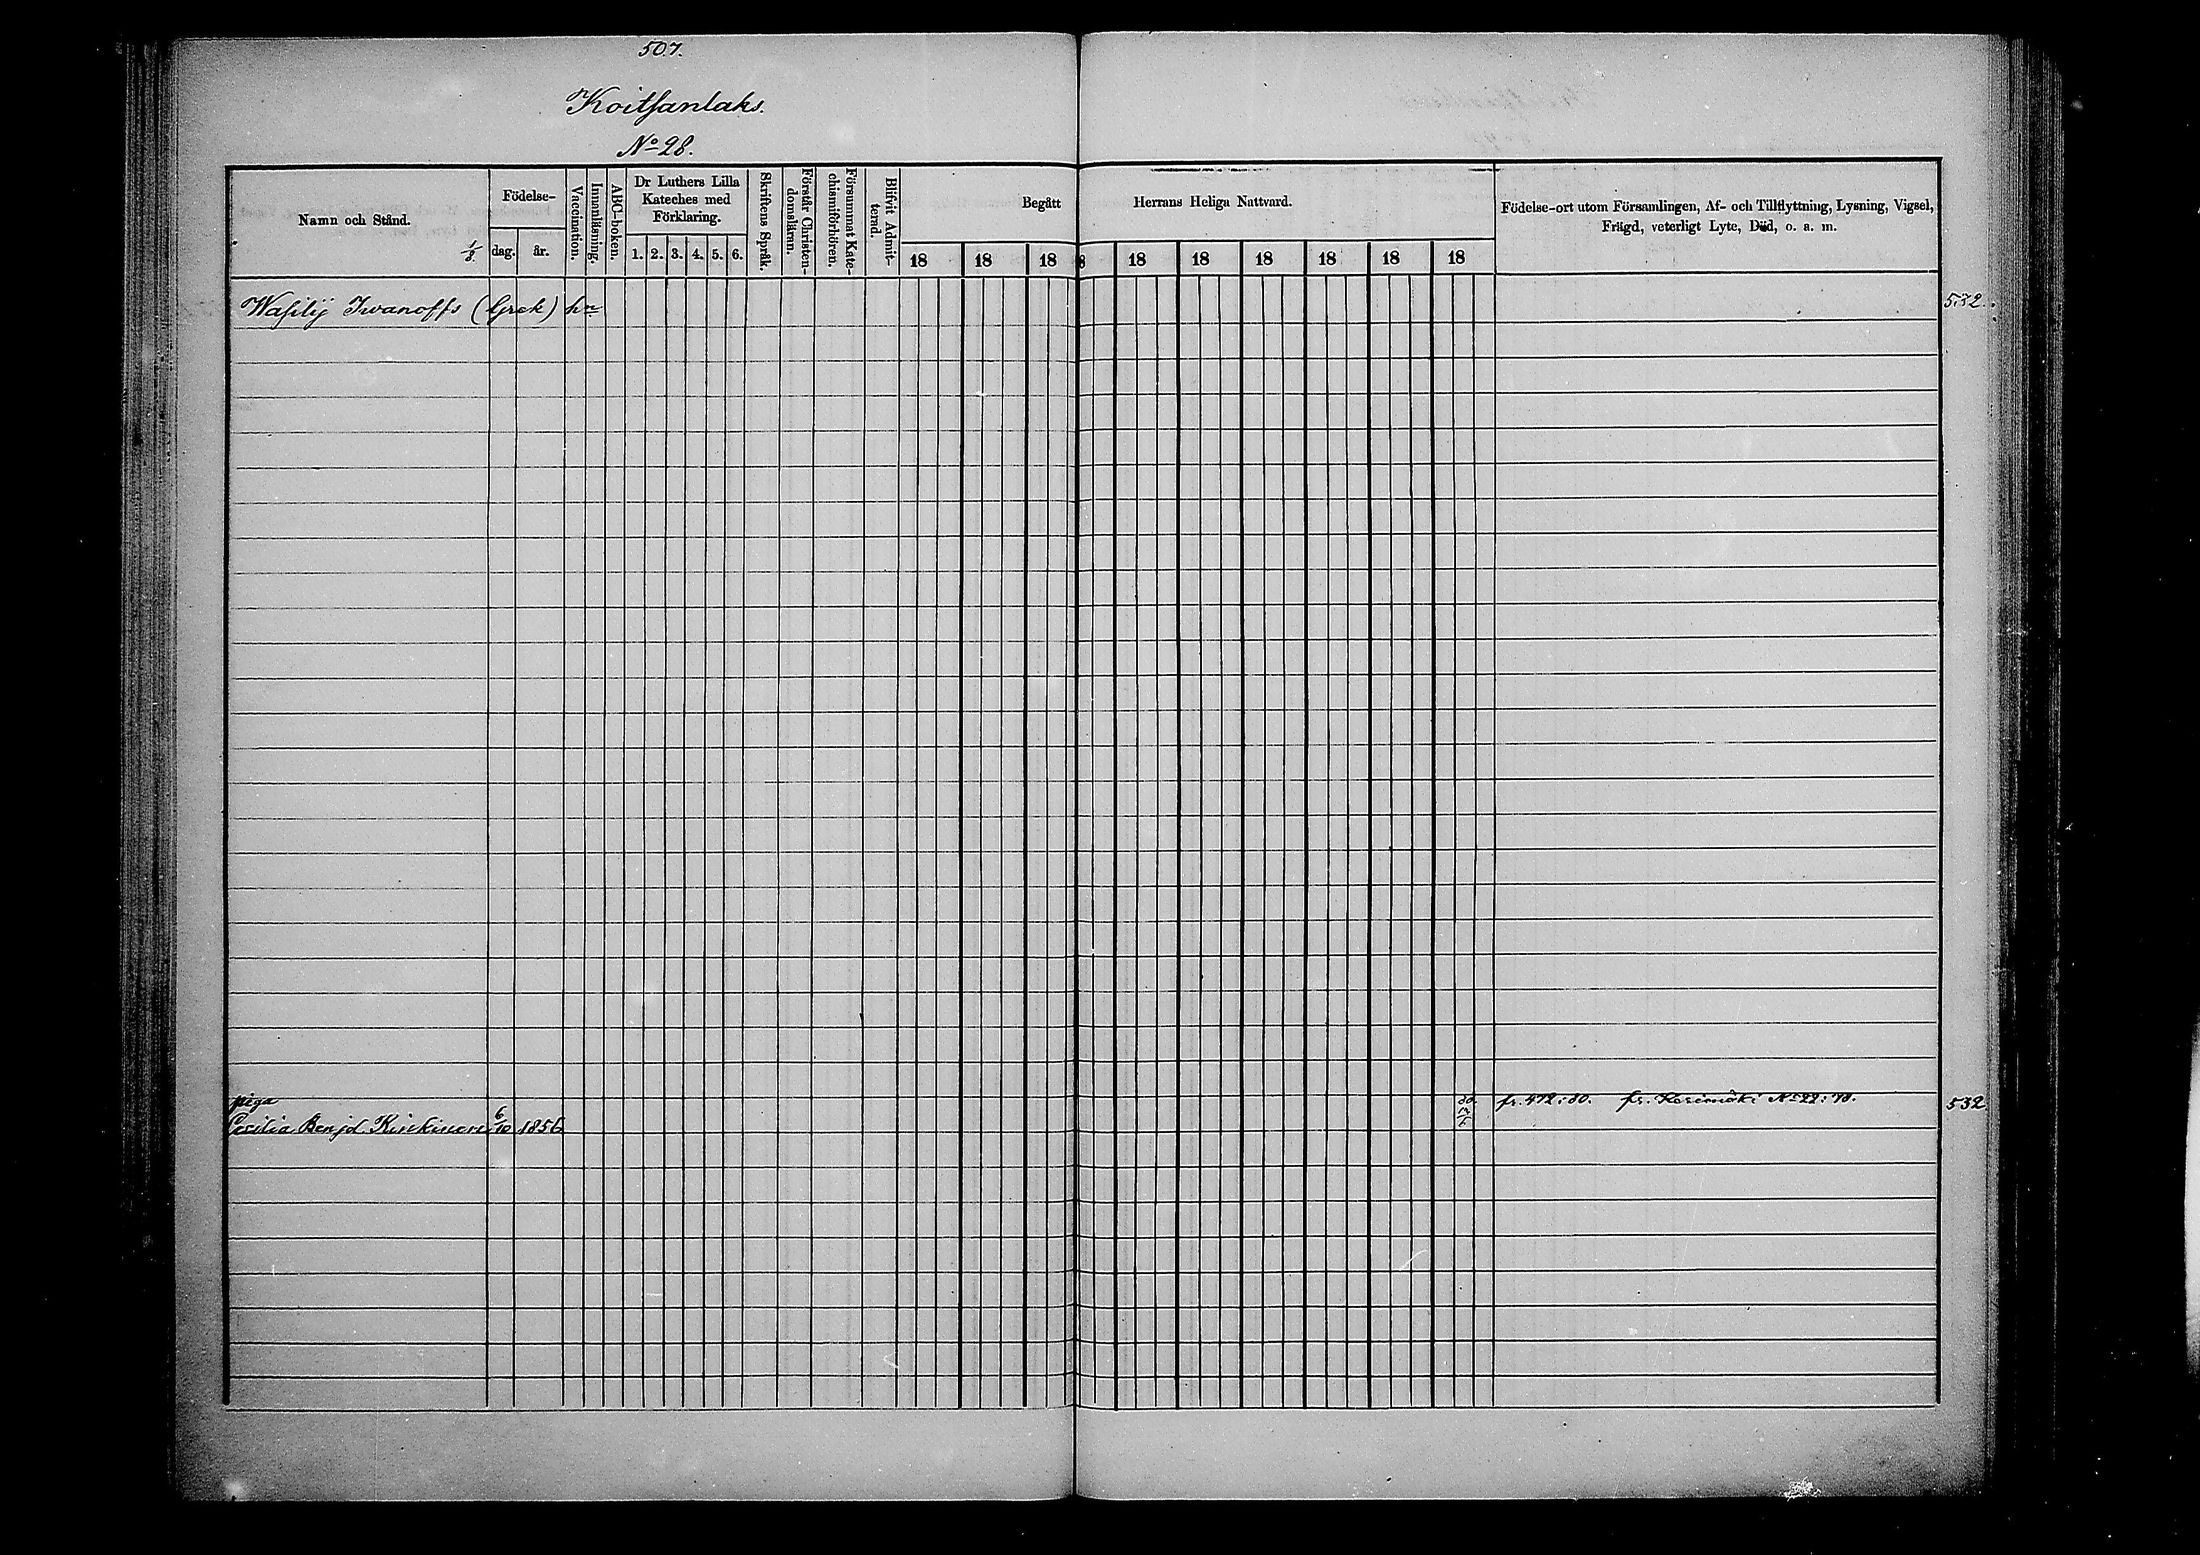 507.
Koitsanlaks.
No 28.
Namn och Stånd.
Födelse-
dag.
år.
Vaccination.
Innanläsning.
ABC-boken.
Dr Luthers Lilla
Kateches med
Förklaring.
1. 2. 3. 4. 5. 6.
Skriftens Språk.
Förstår Christen-
domsläran.
Försummat Kate-
chismiförhören.
Blifvit Admit-
terad.
Begått Herrans Heliga Nattvard.
18 18 18 18 18 18 18 18 18
Födelse-ort utom Församlingen, Af- och Tillflyttning, Lysning, Vigsel,
Frägd, veterligt Lyte, Död, o. a. m.
Wasilij Iwanoffs (Grek) hn 532.
piga
Cecilia Benjd. 6/10 1856 fr. 472:80. fr. Kerimäki No 22:78. 532